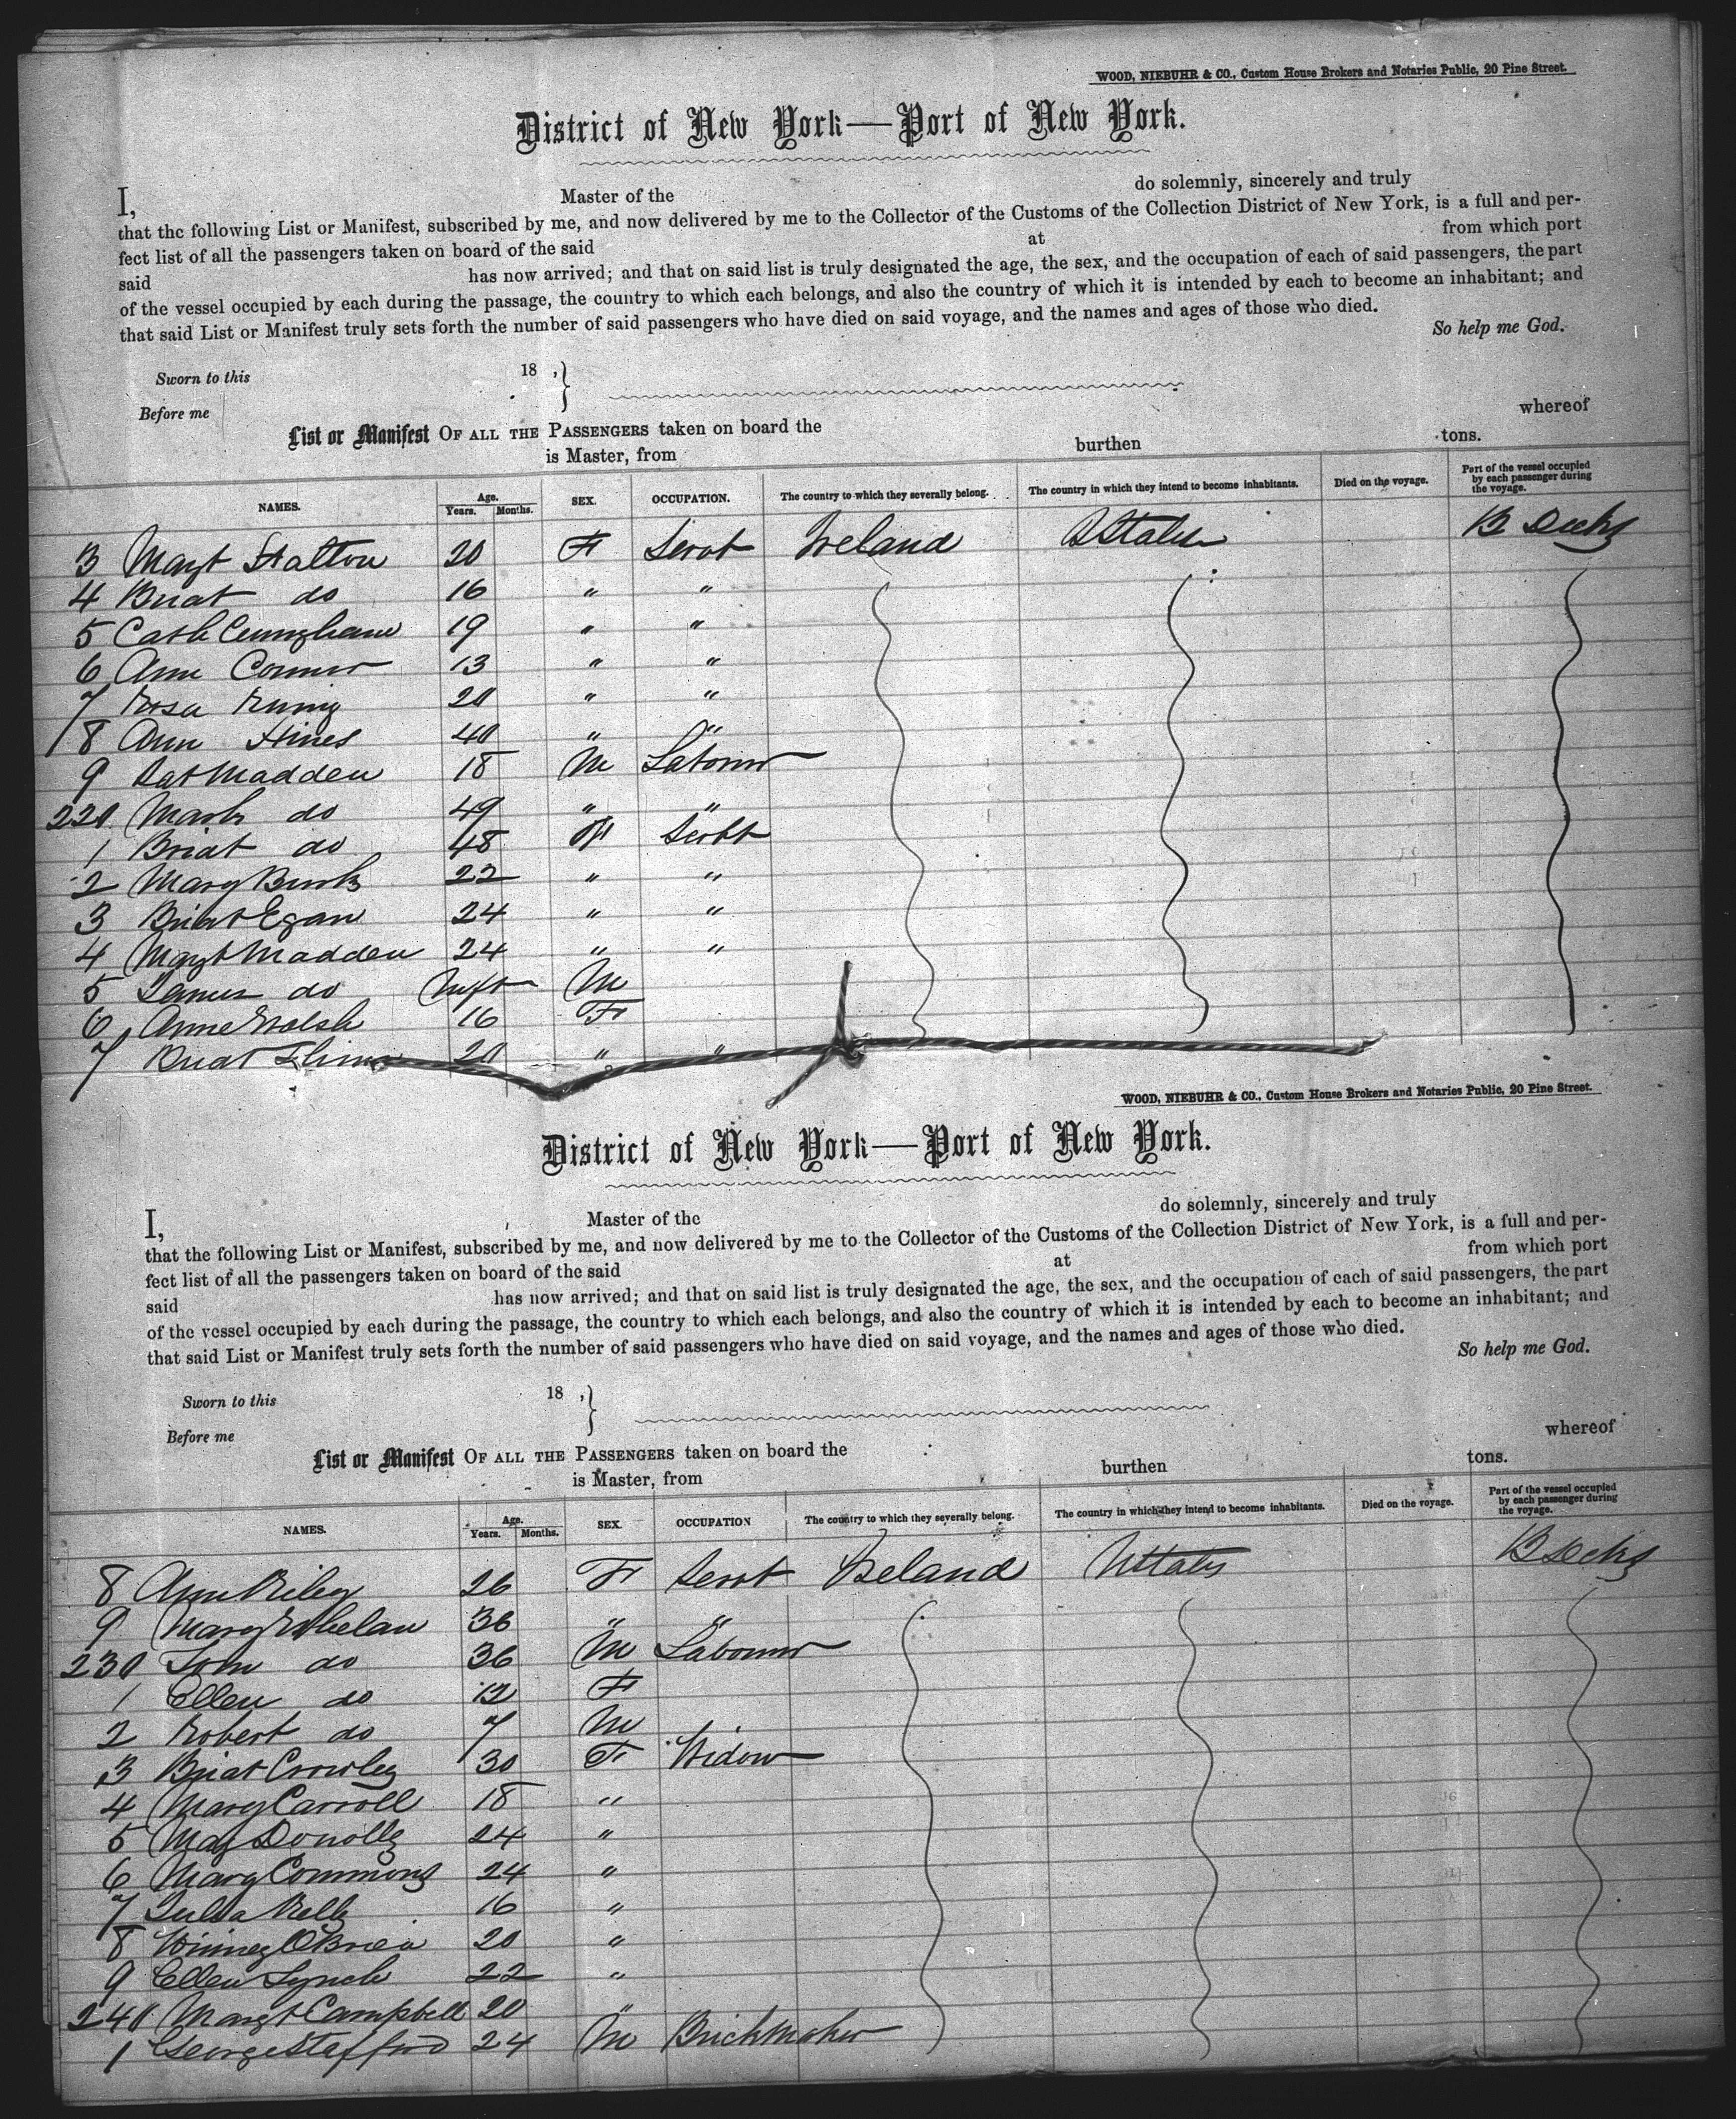 WOOD, NIEBUHR & CO., Custom House Brokers and Notaries Public, 20 Pine Street.
District of New York—Port of New York.
I, Master of the do solemnly, sincerely and truly
that the following List or Manifest, subscribed by me, and now delivered by me to the Collector of the Customs of the Collection District of New York, is a full and per-
fect list of all the passengers taken on board of the said at from which port
said has now arrived; and that on said list is truly designated the age, the sex, and the occupation of each of said passengers, the part
of the vessel occupied by each during the passage, the country to which each belongs, and also the country of which it is intended by each to become an inhabitant; and
that said List or Manifest truly sets forth the number of said passengers who have died on said voyage, and the names and ages of those who died.
So help me God.
Sworn to this 18 , }
Before me
List or Manifest OF ALL THE PASSENGERS taken on board the whereof
is Master, from burthen tons.
NAMES. Age. Years. Months. SEX. OCCUPATION. The country to which they severally belong. The country in which they intend to become inhabitants. Died on the voyage. Part of the vessel occupied by each passenger during the voyage.
3 Margt 20 F Servt Ireland UStates B Decks
4 Bridt do 16 " "
5 Cath Cuningham 19 " "
6 Ann Connor 13 " "
7 Rosa 20 " "
8 Ann Hines 40 " "
9 Pat Madden 18 M Labourer
220 Mark do 49 " "
1 Bridt do 48 F Servt
2 Mary Burk 22 " "
3 Bridt Egan 24 " "
4 Margt Madden 24 " "
5 James do Inft M
6 Anne Walsh 16 F
7 Bridt 20 " "
WOOD, NIEBUHR & CO., Custom House Brokers and Notaries Public, 20 Pine Street.
District of New York—Port of New York.
I, Master of the do solemnly, sincerely and truly
that the following List or Manifest, subscribed by me, and now delivered by me to the Collector of the Customs of the Collection District of New York, is a full and per-
fect list of all the passengers taken on board of the said at from which port
said has now arrived; and that on said list is truly designated the age, the sex, and the occupation of each of said passengers, the part
of the vessel occupied by each during the passage, the country to which each belongs, and also the country of which it is intended by each to become an inhabitant; and
that said List or Manifest truly sets forth the number of said passengers who have died on said voyage, and the names and ages of those who died.
So help me God.
Sworn to this 18 , }
Before me
List or Manifest OF ALL THE PASSENGERS taken on board the whereof
is Master, from burthen tons.
NAMES. Age. Years. Months. SEX. OCCUPATION The country to which they severally belong. The country in which they intend to become inhabitants. Died on the voyage. Part of the vessel occupied by each passenger during the voyage.
8 Ann Riley 26 F Servt Ireland UStates B Decks
9 Mary Whelan 36 " "
230 John do 36 M Labourer
1 Ellen do 12 F
2 Robert do 7 M
3 Bridt Crowley 30 F Widow
4 Mary Carroll 18 "
5 Mary Donolly 24 "
6 Mary Commons 24 "
7 Julia 16 "
8 Winney O'Brien 20 "
9 Ellen Lynch 22 "
240 Margt Campbell 20 "
1 George Stafford 24 M Brickmaker